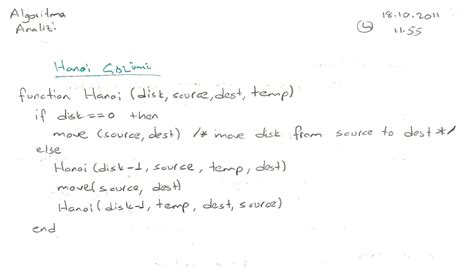 Algoritma
Analizi
18.10.2011
4
11.55
Hanoi Çözümü
function Hanoi (disk, source, dest, temp)
if disk==0 then
move (source, dest) /* move disk from source to dest */
else
Hanoi (disk-1, source, temp, dest)
move(source, dest)
Hanoi(disk-1, temp, dest, source)
end